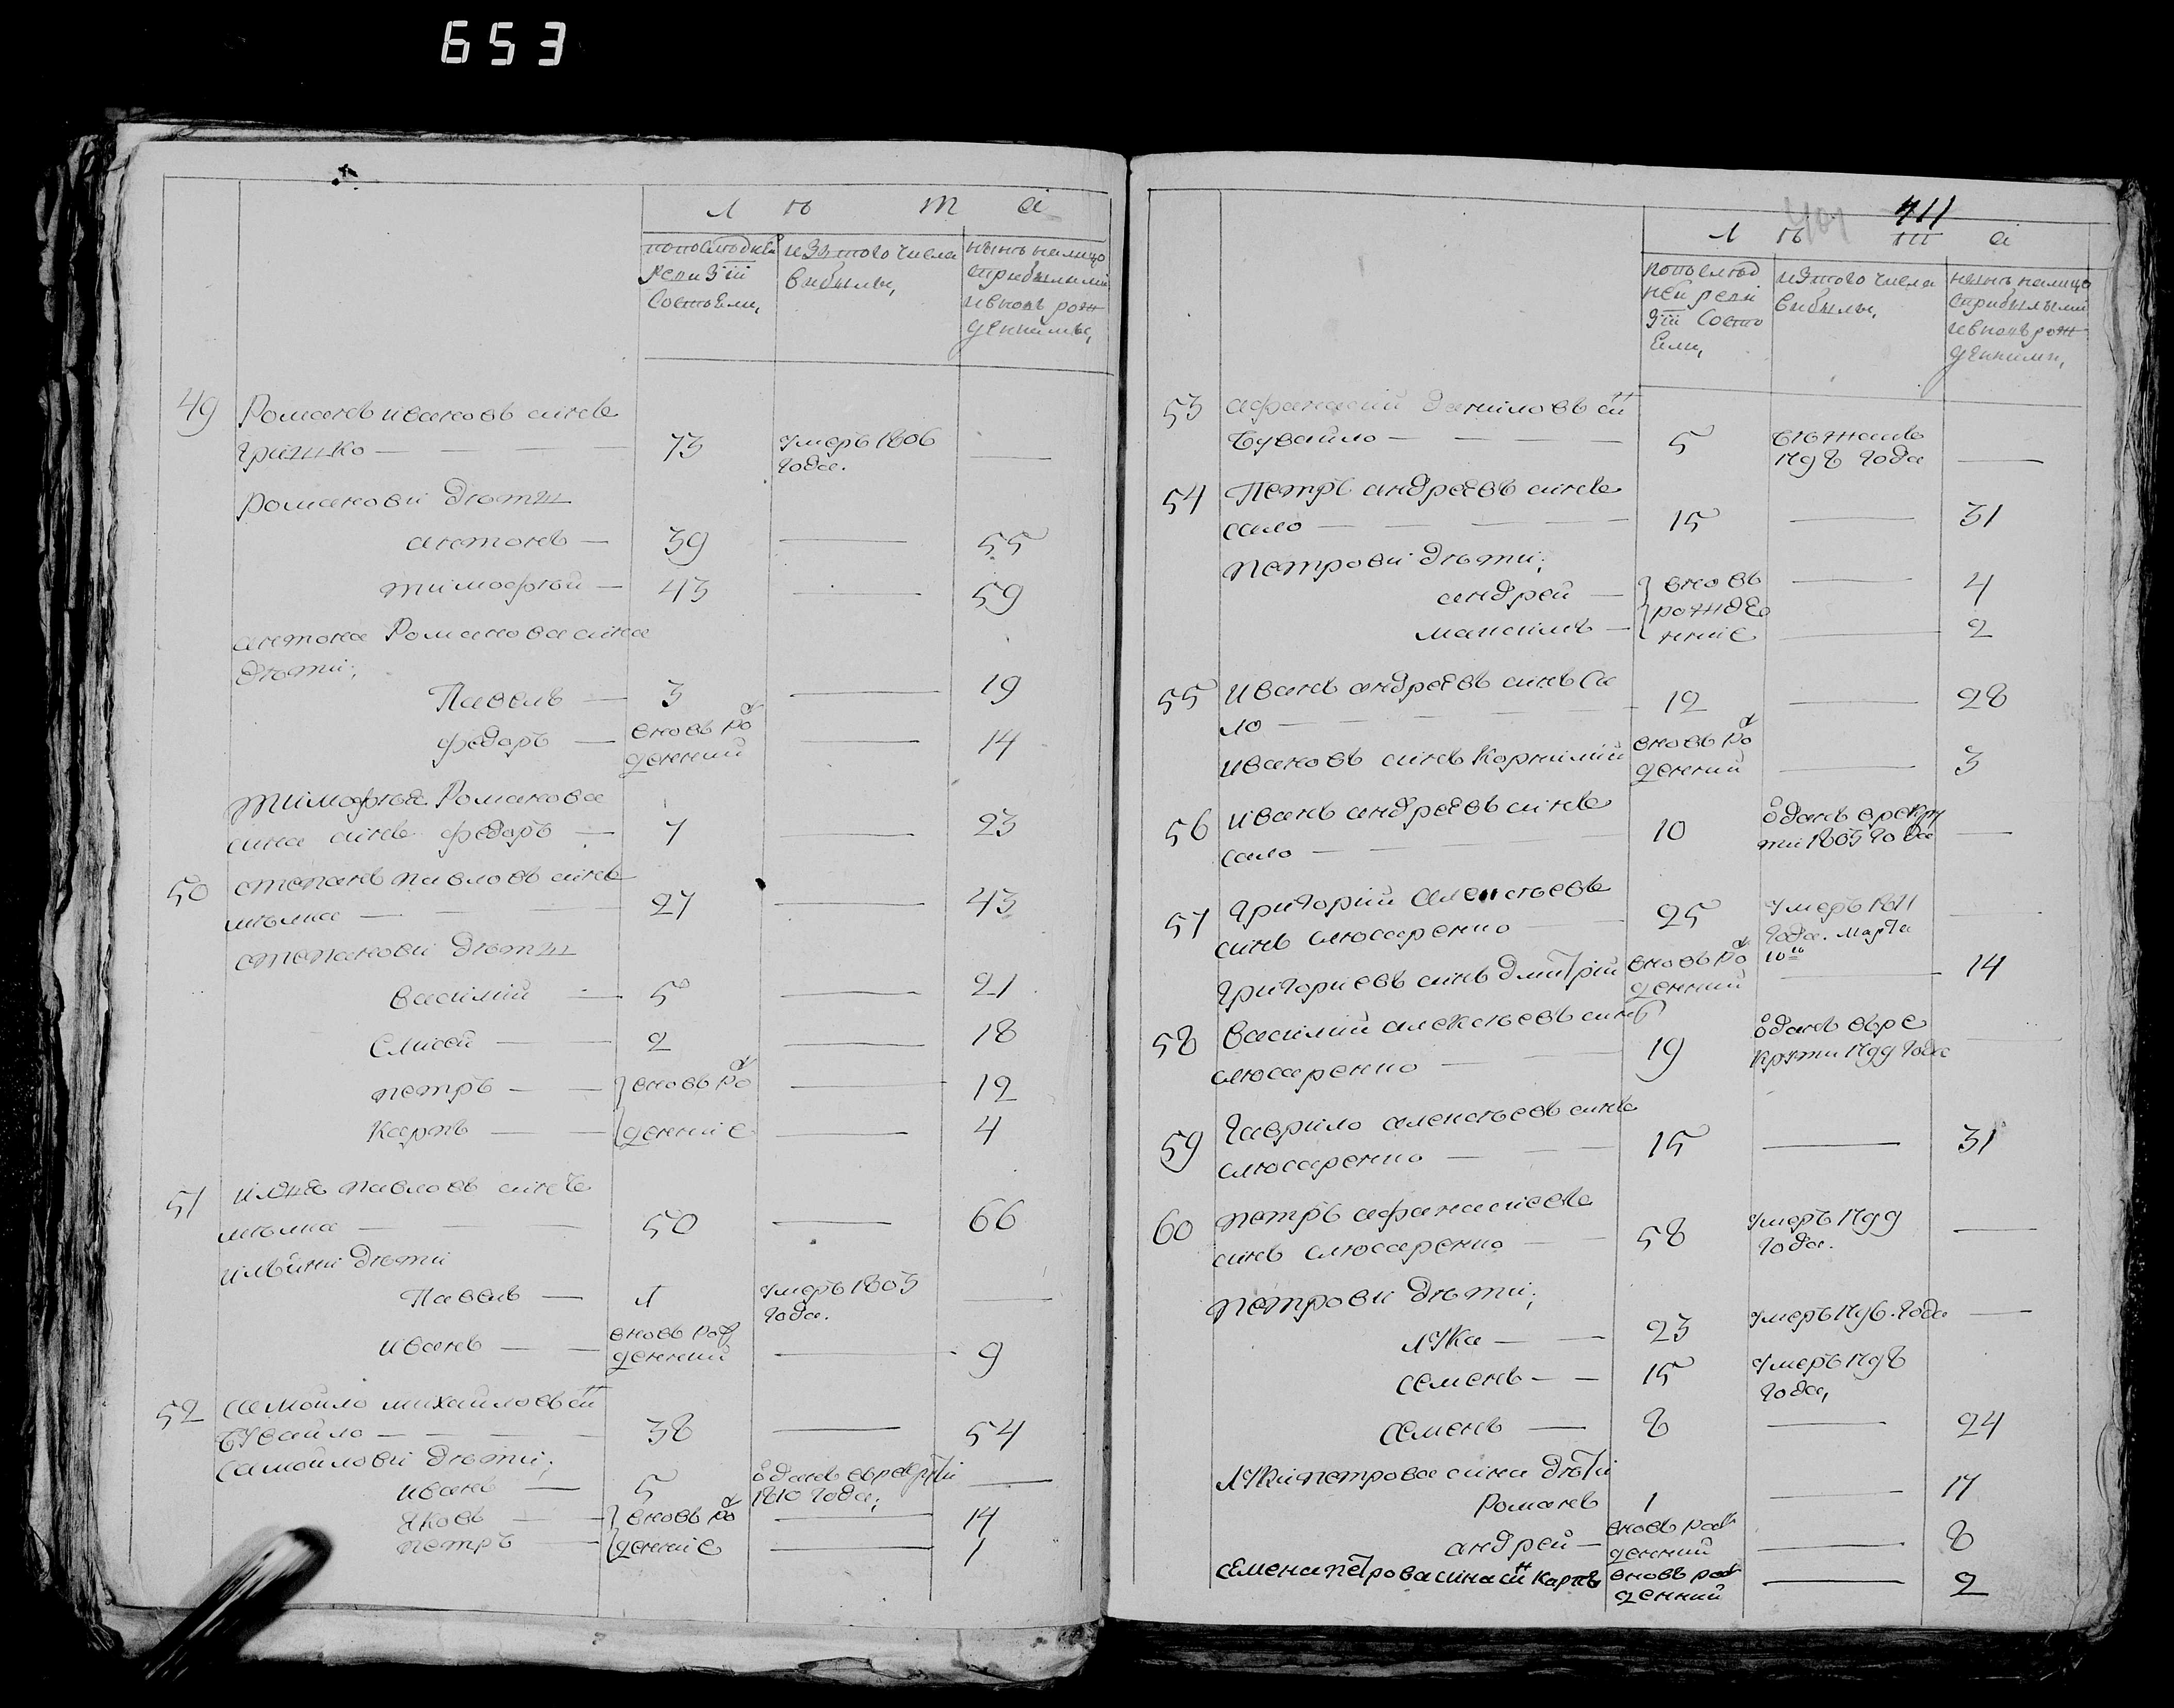 653
Л ѣ т а
по последней
ревизіи
состояли,
изътого числа
выбыли,
нынѣ налицо
сприбылыми
ивновь рож
денными,
49 Романъ ивановъ синъ
гришко — 73 умеръ 1806 —
года.
романови дѣти
антонъ — 39 — 55
тимофѣй — 43 — 59
антона Романова сина
дѣти;
Павелъ — 3 — 19
федоръ — вновь рож — 14
денний
тимофѣя Романова
сина синъ федоръ — 7 — 23
50 степанъ павловъ синъ
— 27 — 43
степанови дѣти
василий — 5 — 21
елисей — 2 — 18
петръ — вновь рож — 12
карпъ — денніе — 4
51 илья павловъ синъ
— 50 — 66
ильини дѣти
Павелъ — умеръ 1803 —
года.
иванъ — вновь рож
денний — 9
52 самойло михайловъ синъ
бувайло — 38 — 54
самойлови дѣти;
иванъ — 5 одан врекрути —
1810 года;
яковъ — вновь рож — 14
петръ — денніе — 1
401 411
Л ѣ т а
попослѣд
ней реви
зіи состо
яли,
изтого числа
выбыли,
нынѣ налицо
сприбылыми
ивновь рож
денними,
53 афанасий даниловъ синъ
бувайло — 5 бѣжалъ
1798 года —
54 Петръ андреевъ синъ
сало — 15 — 31
петрови дѣти;
андрей — вновь — 4
рожде
максимъ — нніе — 2
55 иванъ андреевъ синъ са
ло — 12 — 28
ивановъ синъ корнилий вновь рож
денний — 3
56 иванъ андреевъ синъ
сало — 10 одан врекру
ти 1805 года —
57 григорий алексѣевъ
синъ слюсаренко — 25 умеръ 1811
года. марта
10го
григориевъ синъ дмитрій вновь рож
денний — 14
58 василий алексѣевъ синъ
слюсаренко — 19 одан вре
крути 1799 года —
59 гаврило алексѣевъ синъ
слюсаренко — 15 — 31
60 петръ афанасиевъ
синъ слюсаренко — 58 умеръ 1799
года. —
петрови дѣти;
лука — 23 умеръ 1796. года —
семенъ — 15 умеръ 1798
года,
семенъ — 8 — 24
луки петрова сина дѣти
романъ 1 — 17
андрей — вновь рож
денний — 8
семена петрова сина синъ карпъ вновь рож
денний — 2